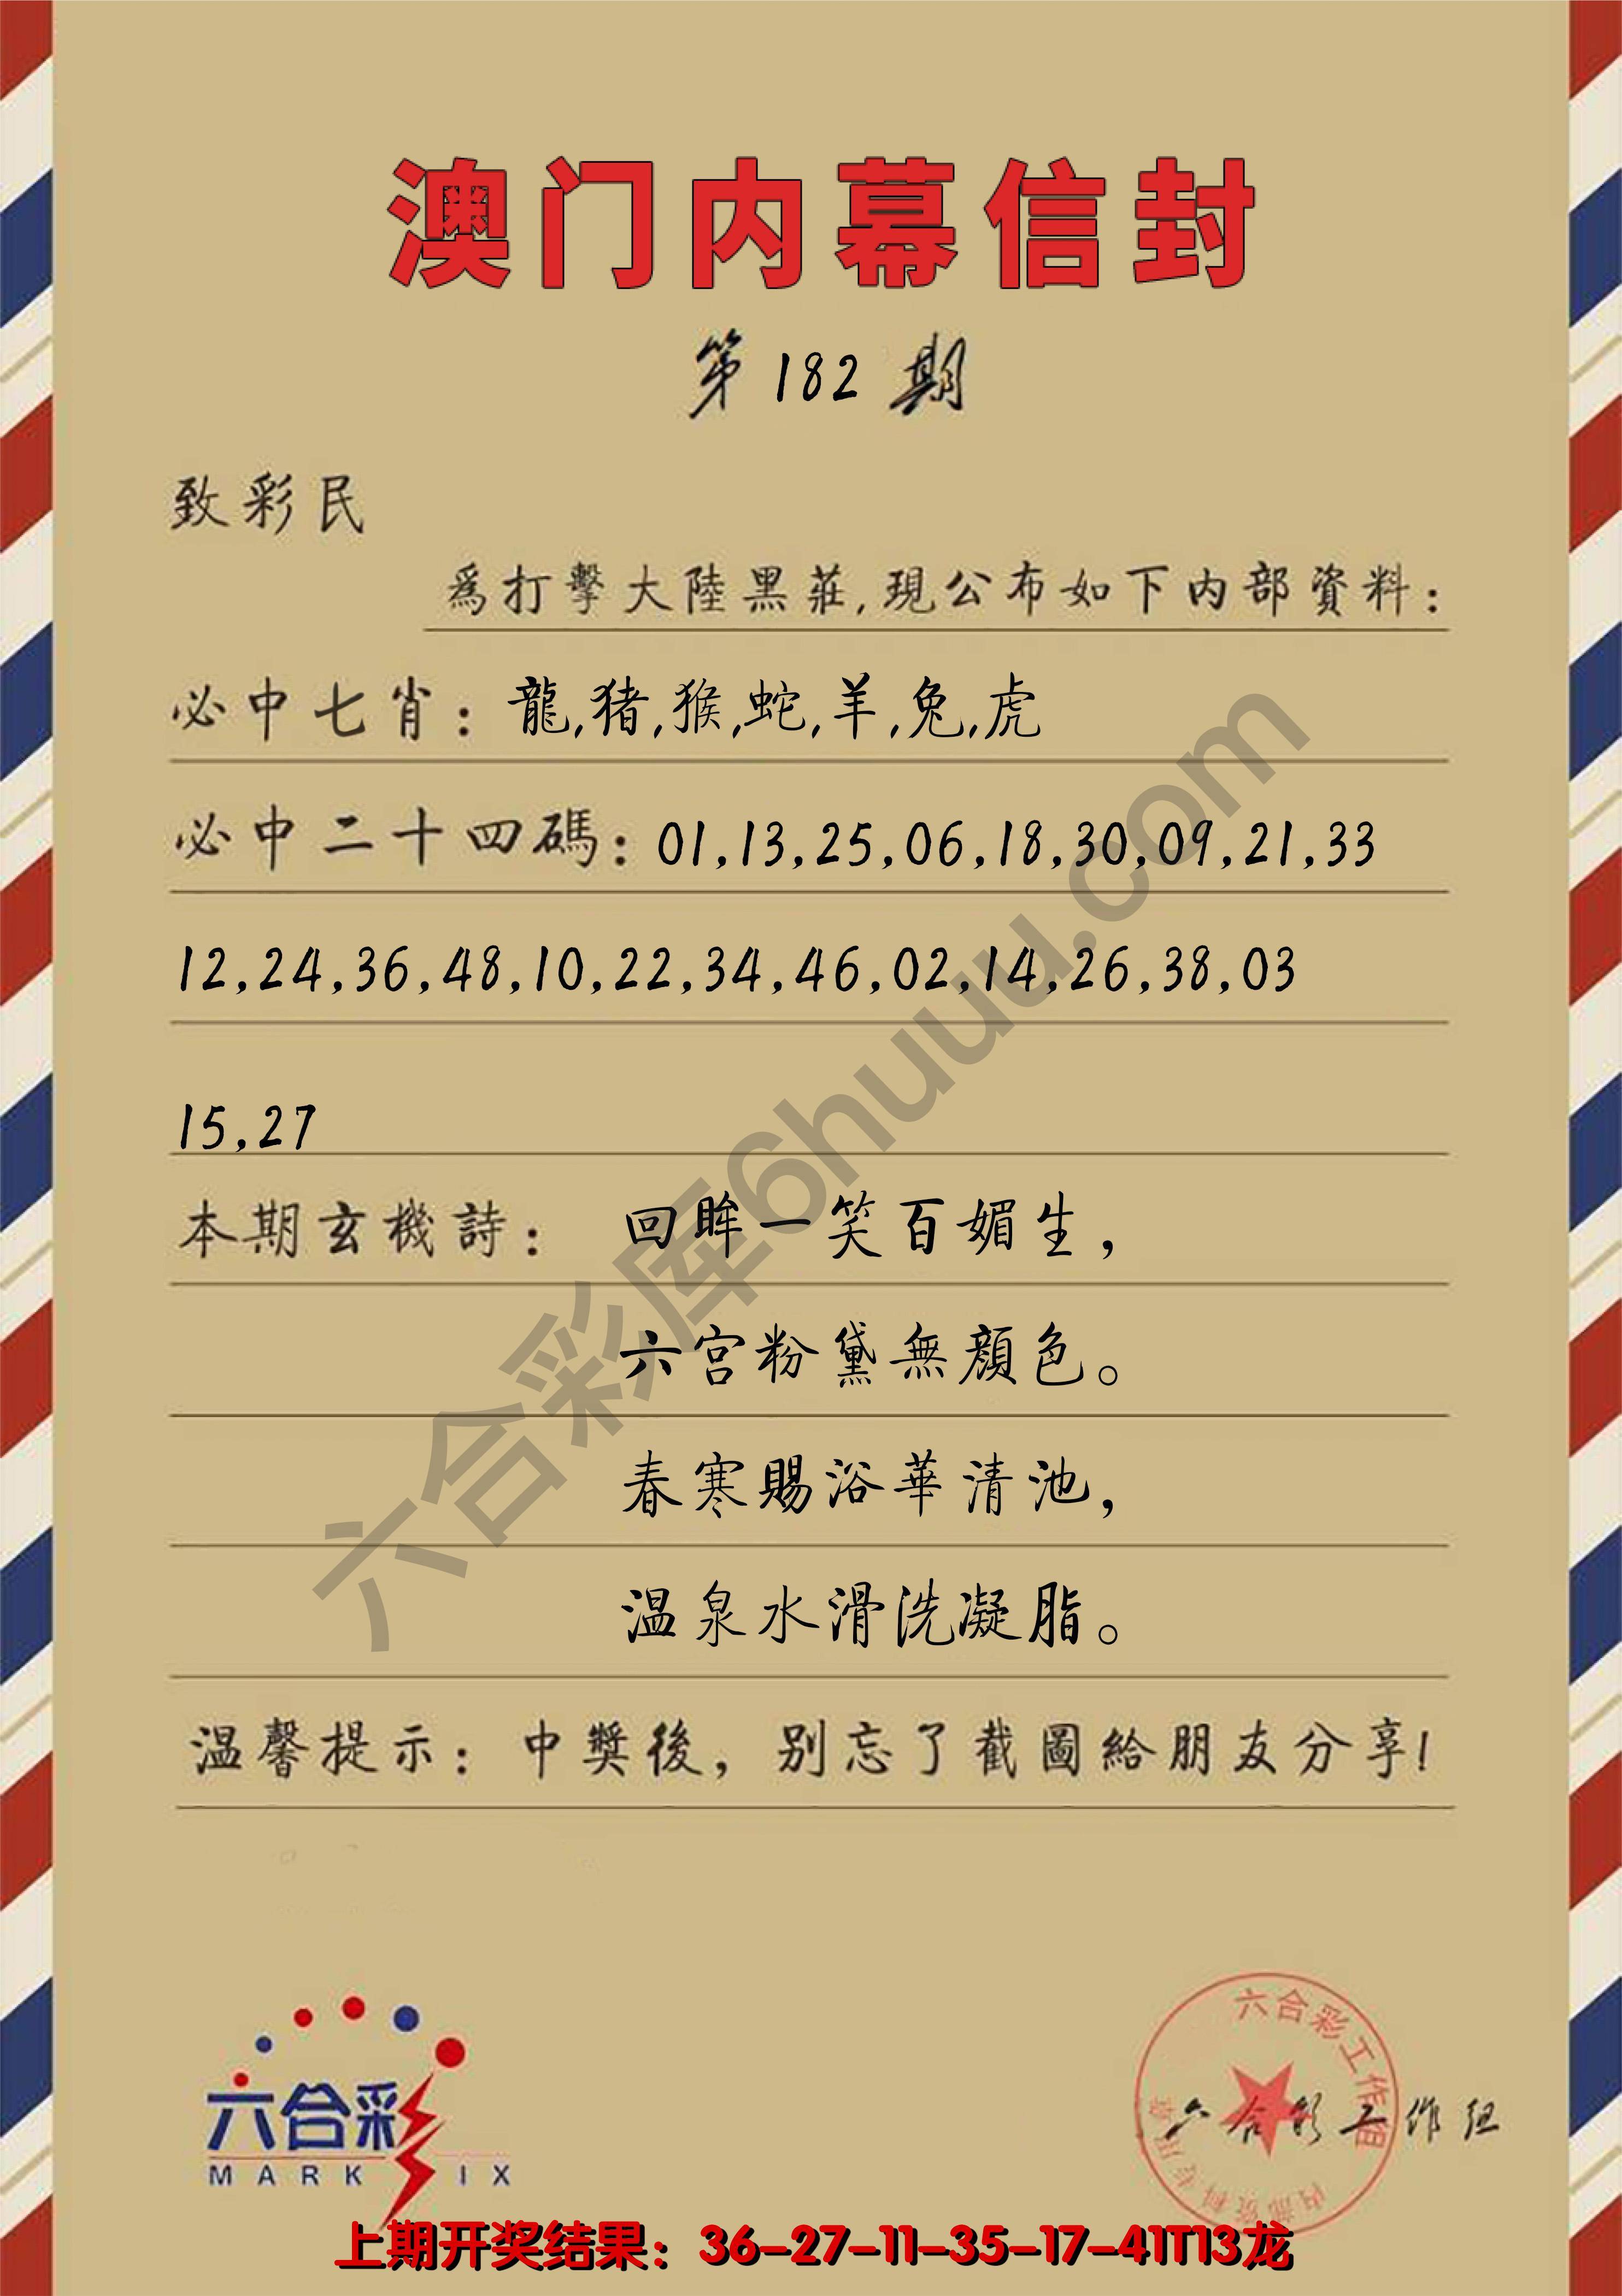 澳门内幕信封
第182期
致彩民
爲打擊大陸黑莊,現公布如下内部資料:
必中七肖:龍,猪,猴,蛇,羊,兔,虎
必中二十四碼:01,13,25,06,18,30,09,21,33
12,24,36,48,10,22,34,46,02,14,26,38,03
15,27
本期玄機詩:回眸一笑百媚生,
六宫粉黛無顔色。
春寒賜浴華清池,
温泉水滑洗凝脂。
温馨提示:中獎後,别忘了截圖給朋友分享!
六合彩库6huuu.com
六合彩
MARK IX
六合彩工作组
内部资料专用章
六合彩工作组
上期开奖结果:36-27-11-35-17-41T13龙